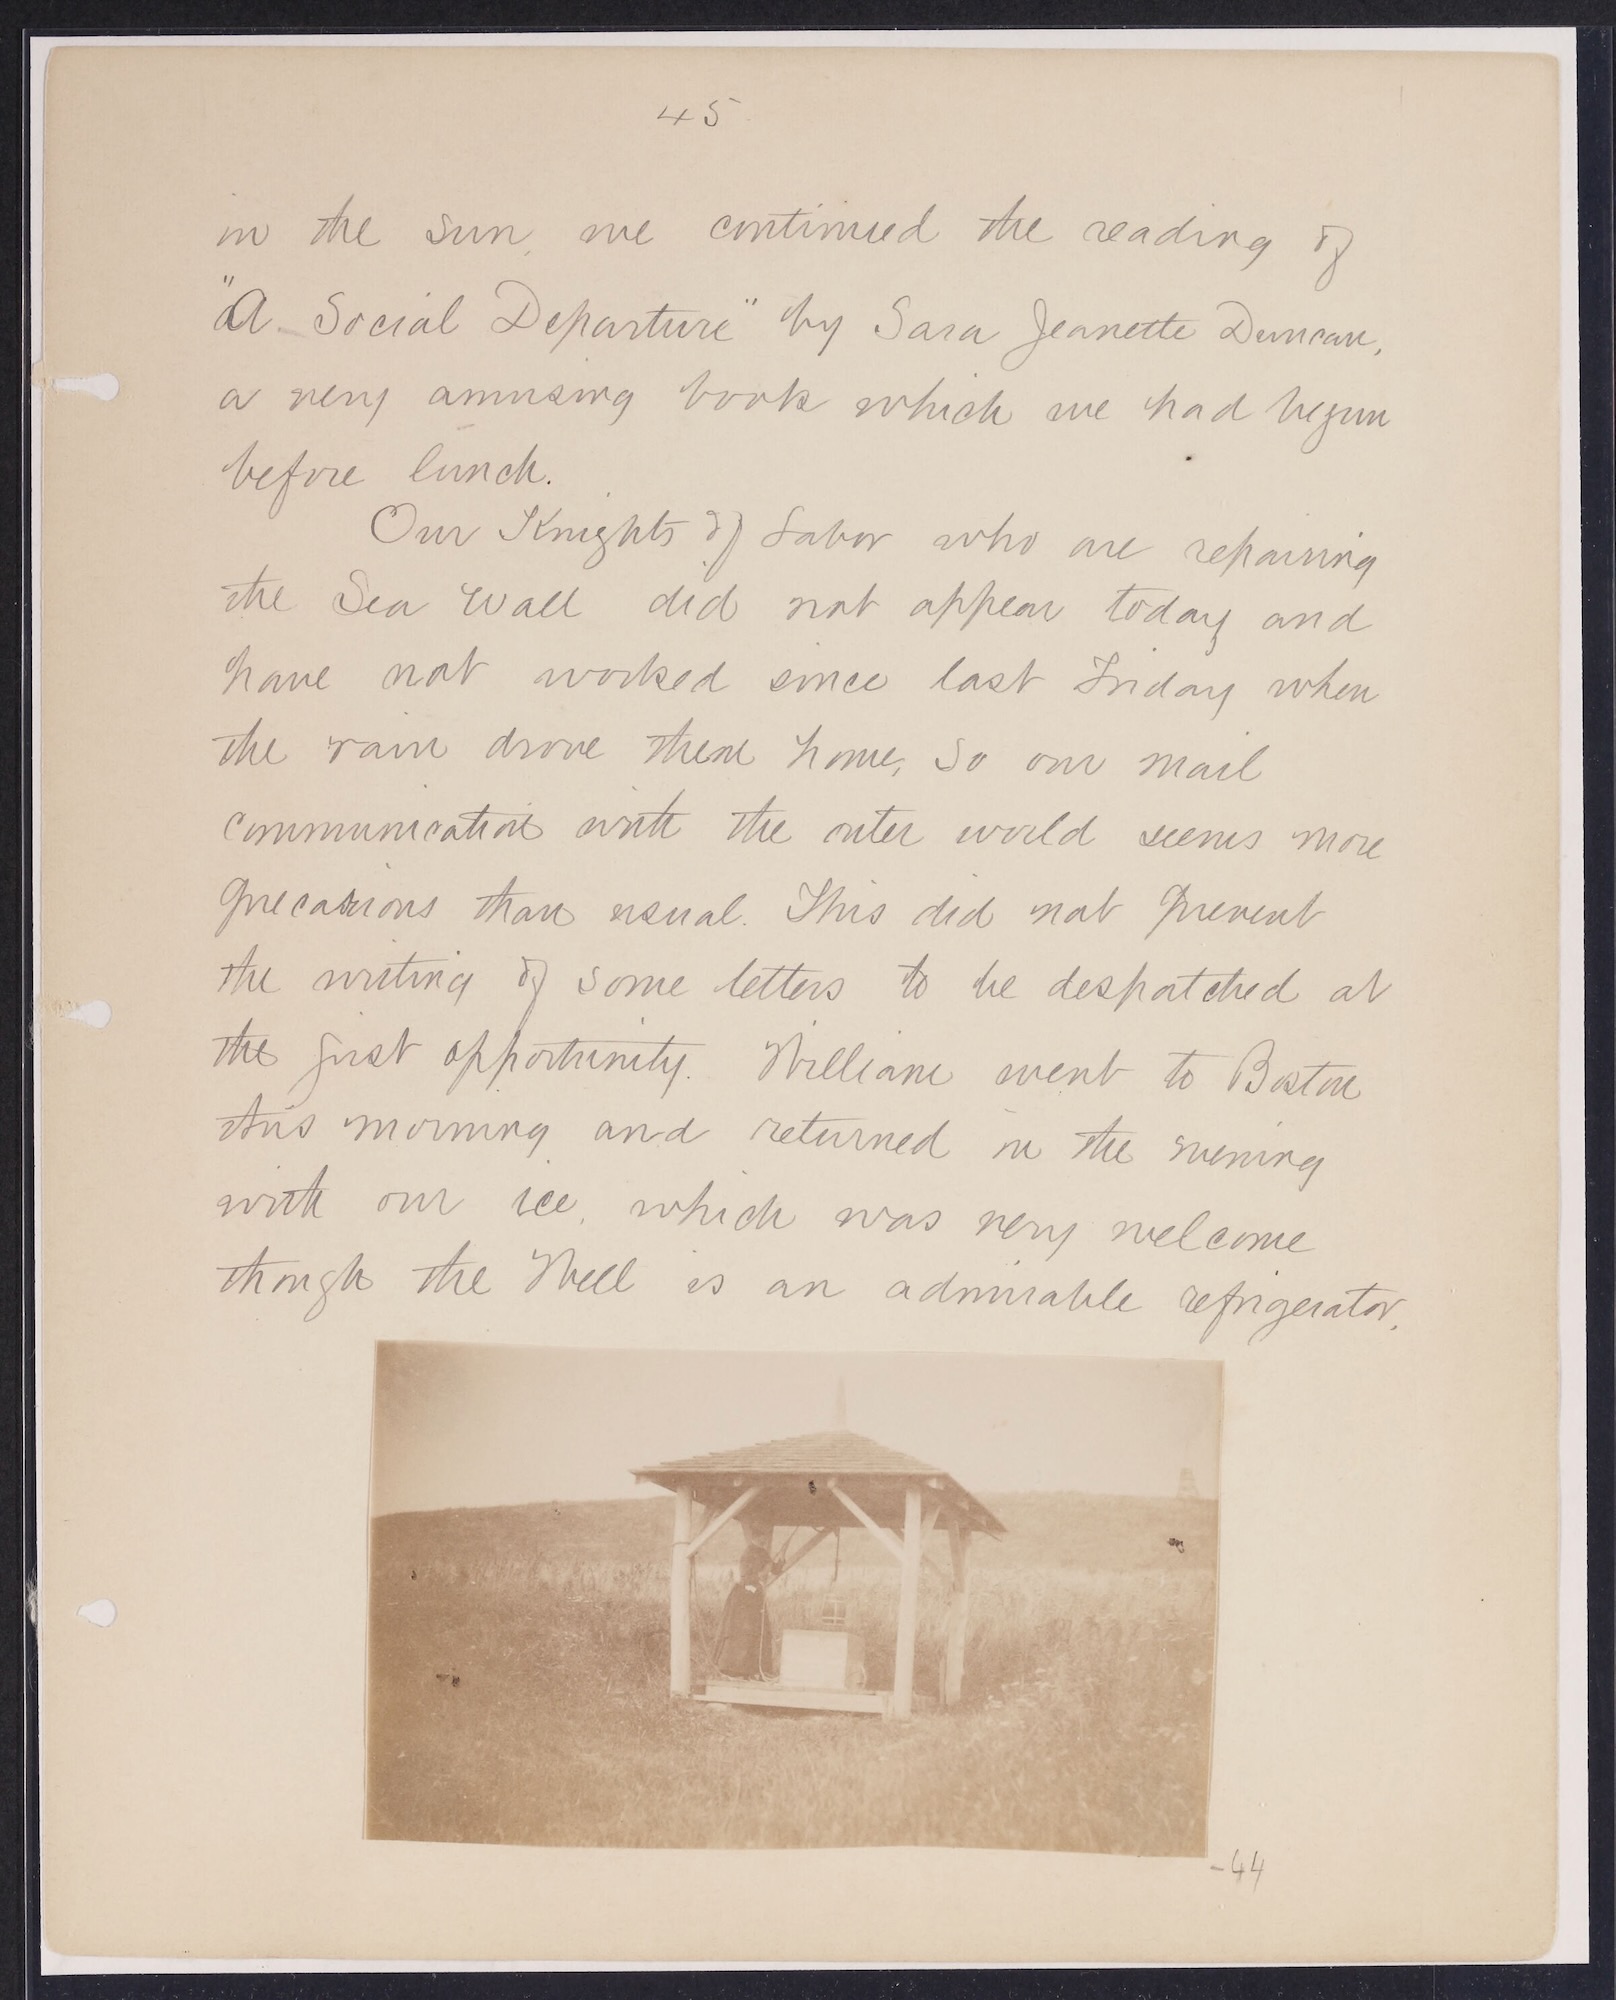 45
in the sun, we continued the reading of
"A Social Departure" by Sara Jeanette Duncan,
a very amusing book which we had begun
before lunch.
Our Knights of Labor who are repairing
the Sea Wall did not appear today and
have not worked since last Friday when
the rain drove them home, so our mail
communication with the outer world seems more
precarious than usual. This did not prevent
the writing of some letters to be despatched at
the first opportunity. William went to Boston
this morning and returned in the evening
with our ice, which was very welcome
though the Well is an admirable refrigerator.
-44